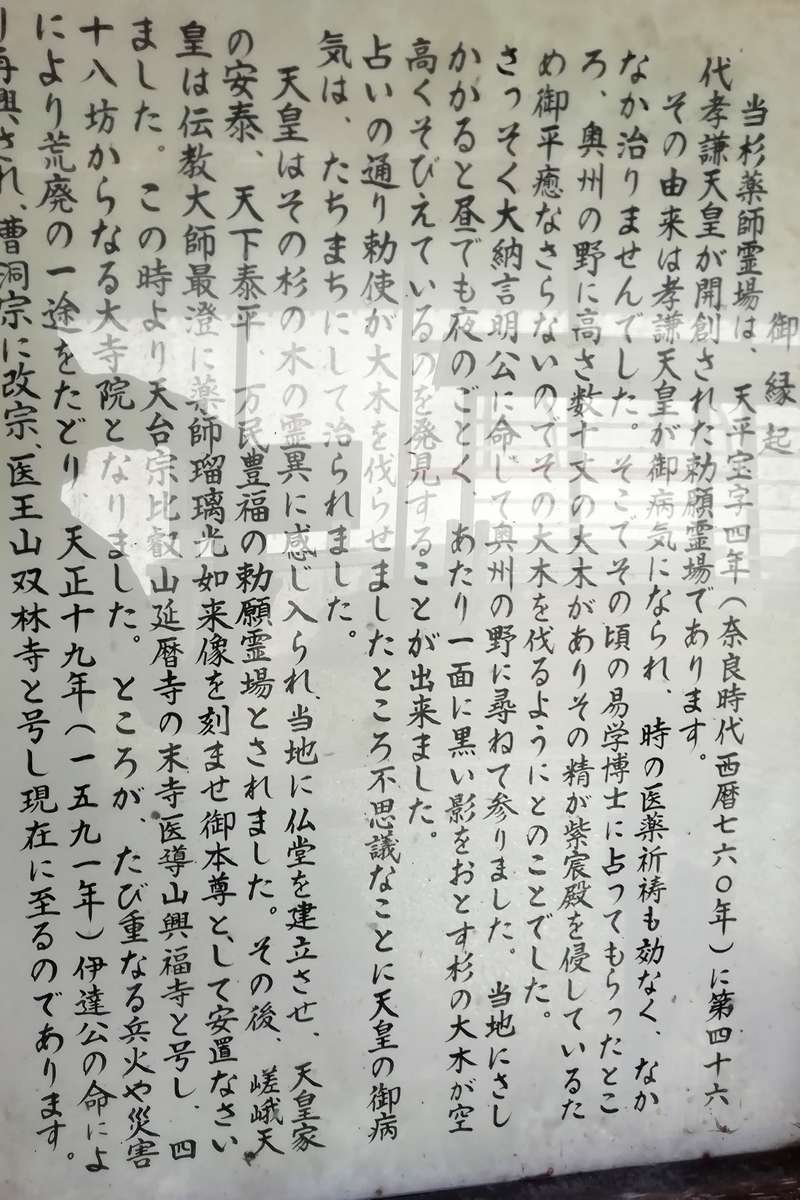 御縁起
当杉薬師霊場は、天平宝字四年(奈良時代西暦七六〇年)に第四十六
代孝謙天皇が開創された勅願霊場であります。
その由来は孝謙天皇が御病気になられ、時の医薬祈祷も効なく、なか
なか治りませんでした。そこでその頃の易学博士に占ってもらったとこ
ろ、奥州の野に高さ数十丈の大木がありその精が紫宸殿を侵しているた
め御平癒なさらないのでその大木を伐るようにとのことでした。
さっそく大納言明公に命じて奥州の野に尋ねて参りました。当地にさし
かかると昼でも夜のごとく、あたり一面に黒い影をおとす杉の大木が空
高くそびえているのを発見することが出来ました。
占いの通り勅使が大木を伐らせましたところ不思議なことに天皇の御病
気は、たちまちにして治られました。
天皇はその杉の木の霊異に感じ入られ、当地に仏堂を建立させ、天皇家
の安泰、天下泰平、万民豊福の勅願霊場とされました。その後、嵯峨天
皇は伝教大師最澄に薬師瑠璃光如来像を刻ませ御本尊として安置なさい
ました。この時より天台宗比叡山延暦寺の末寺医導山興福寺と号し、四
十八坊からなる大寺院となりました。ところが、たび重なる兵火や災害
により荒廃の一途をたどり、天正十九年(一五九一年)伊達公の命によ
り再興され、曹洞宗に改宗、医王山双林寺と号し現在に至るのであります。